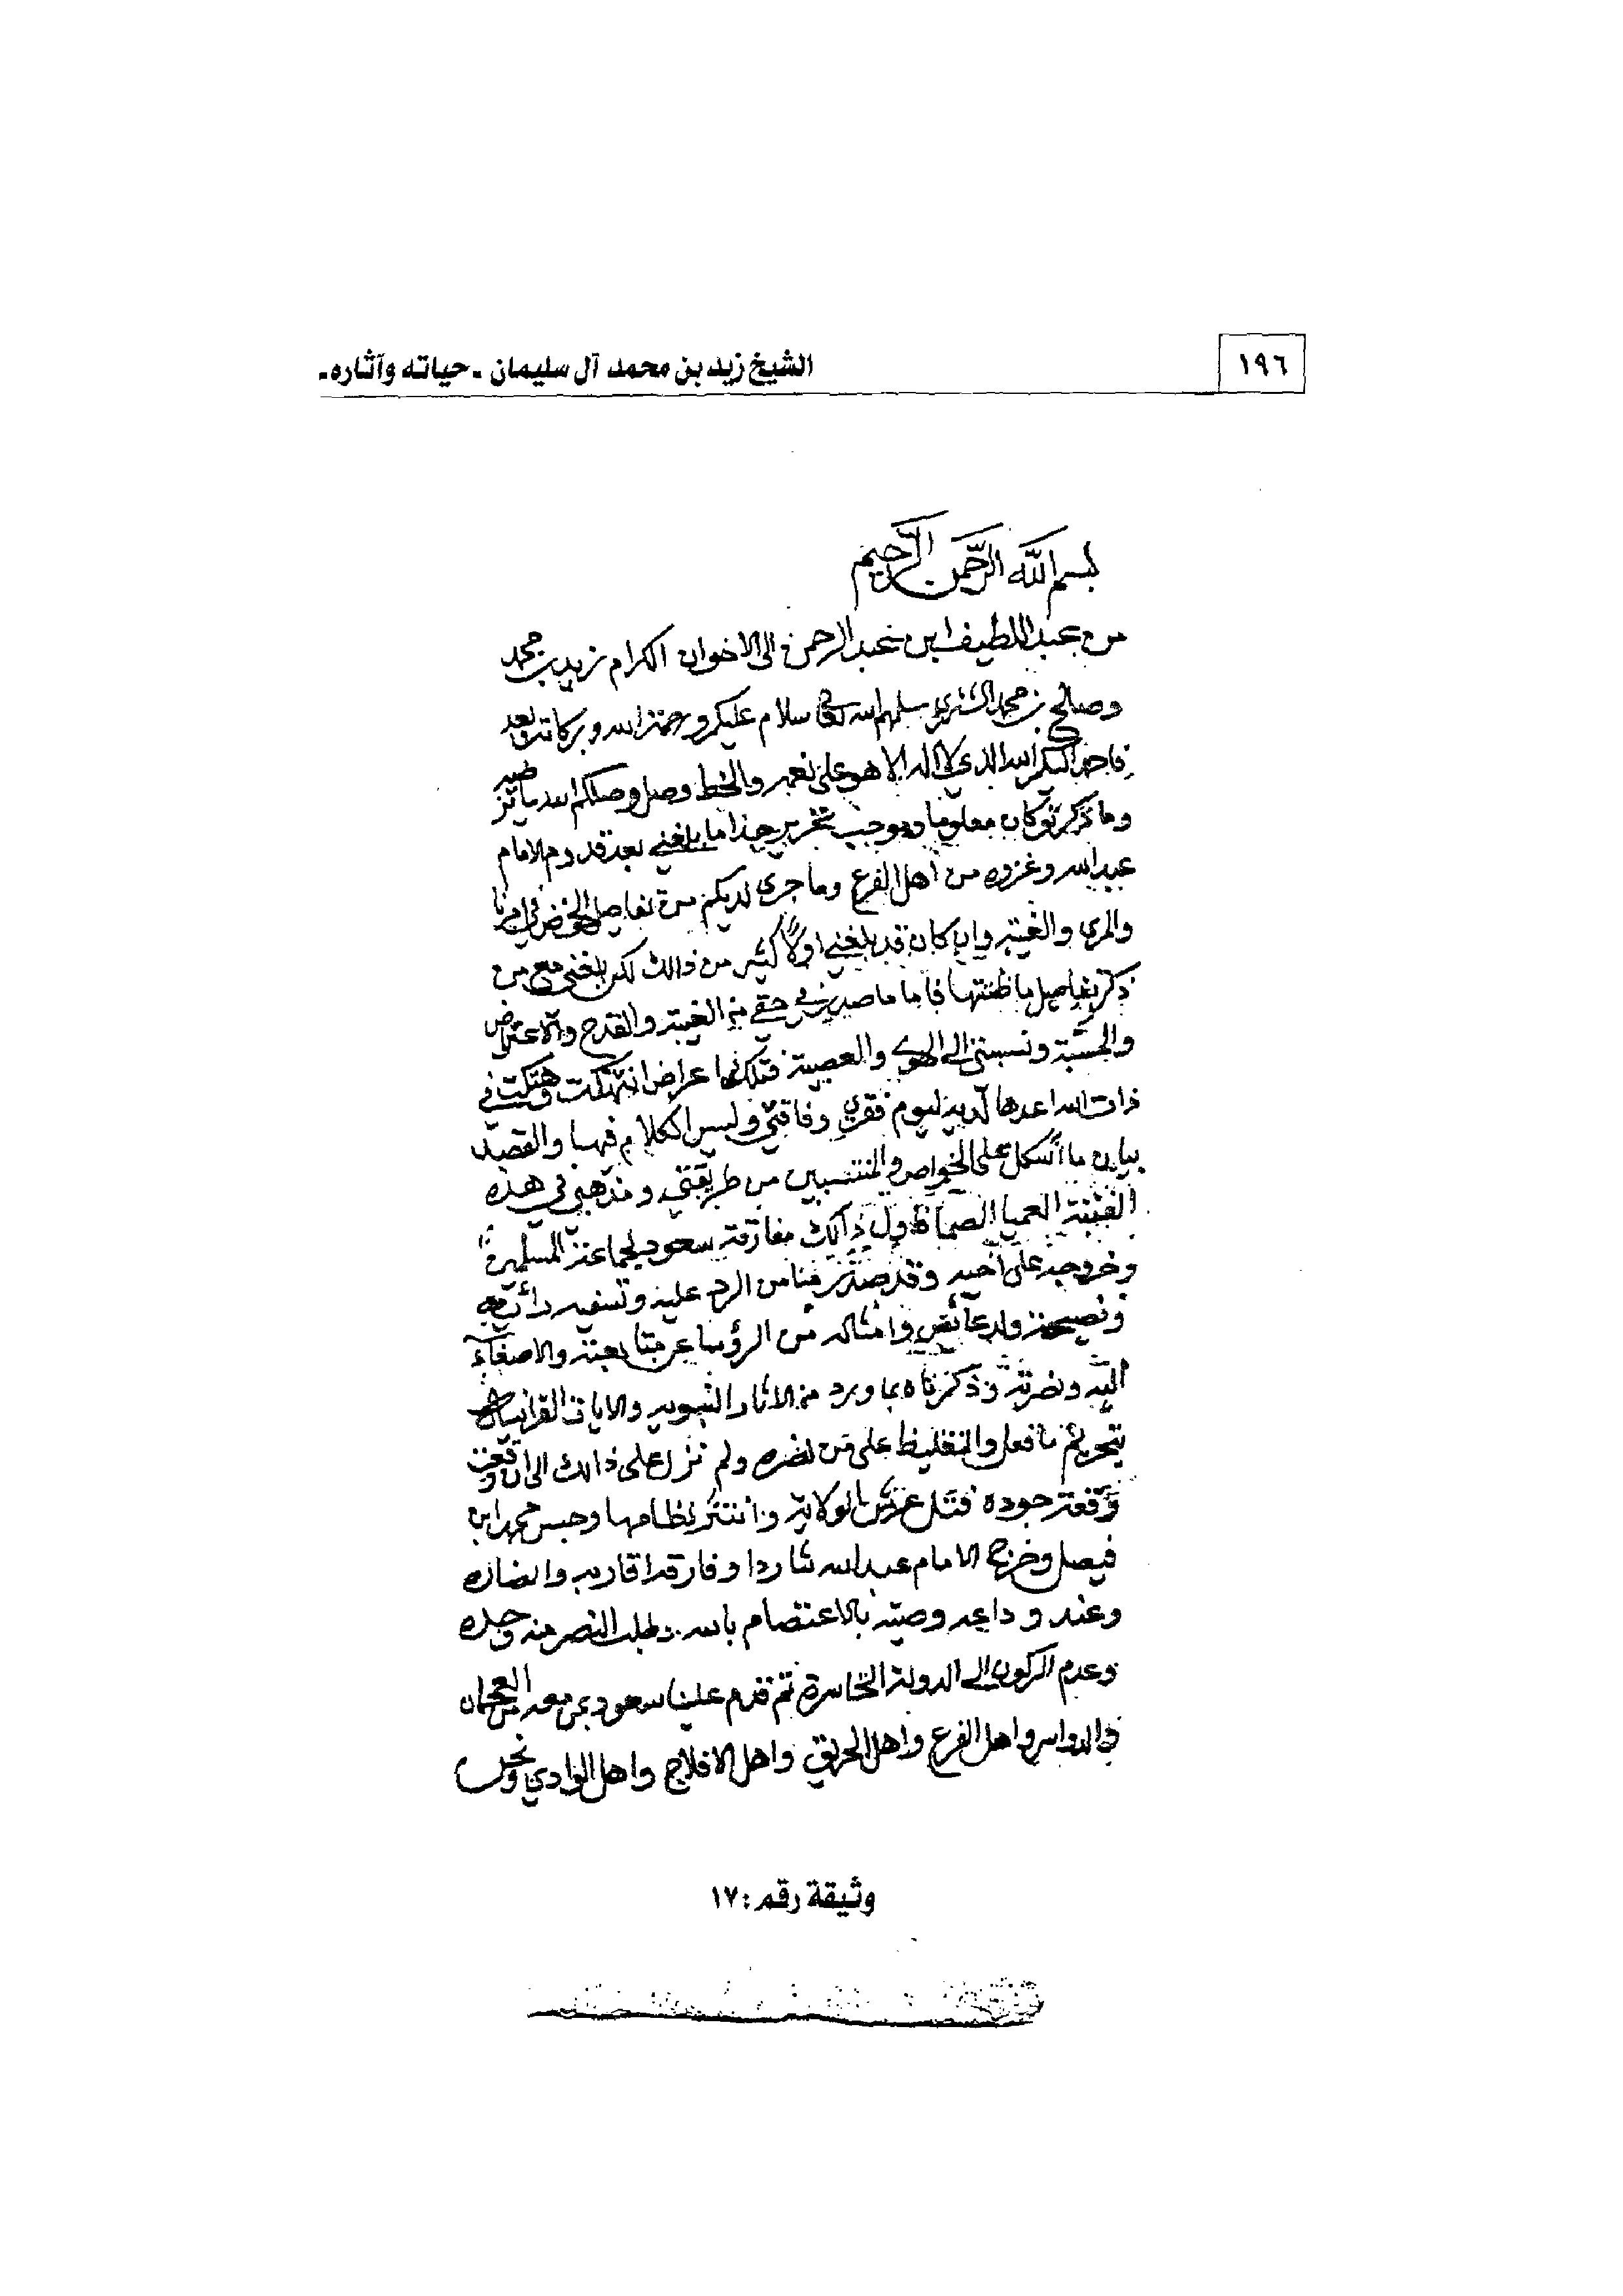 ١٩٦
الشيخ زيد بن محمد آل سليمان - حياته وآثاره -
بسم الله الرحمن الرحيم
من عبد اللطيف ابن عبد الرحمن الى الاخوان الكرام زيد بن محمد
وصالح بن محمد الشثري سلمهم الله تعالى سلام عليكم ورحمة الله وبركاته وبعد
فاحمد اليكم الله الذي لا اله الا هو على نعمه والخط وصل وصلكم الله ما يرضيه
وما ذكرتو كان معلوما وموجب تحرير هذا ما بلغني بعد قدوم الامام
عبد الله وغزوه من أهل الفرع وما جرى لديكم من تفاصيل الخوض في امرنا
والمرى والغيبة وان كان قد بلغني اولا كثير من ذالك لكن بلغني مع من
ذكر تفاصيل ما ظننتها فاما ما صدر في حقي من الغيبة والقدح والاعتراض
والمسبة ونسبتي الى الهوى والعصبية فتلك اعراض انتهكت وهتكت في
ذات الله اعدها لديه ليوم فقري وفاقتي وليس الكلام فيها والقصد
بيان ما أشكل على الخواص والمنتسبين من طريقتي ومذهبي في هذه
الفتنة العميا الصما فاول ذالك مفارقة سعود لجماعة المسلمين
وخروجه على أخيه وقد صدر منا من الرد عليه وتسفيه رائيه
ونصيحة ولد عائض وامثاله من الرؤسا عن متابعته والاصغاء
اليه ونصرته وذكرناه بما ورد من الاثار النبوية والايات القرانية
بتحريم ما فعل والتغليظ على من نصره ولم نزل على ذالك الى ان وقعت
وقعة جوده فثل عرش الولاية وانتثر نظامها وحبس محمد ابن
فيصل وخرج الامام عبد الله شاردا وفارقه اقاربه وانصاره
وعند وداعه وصيته بالاعتصام بالله وطلب النصر منه وحده
وعدم الركون الى الدولة الخاسرة ثم قدم علينا سعود بمن معه من العجمان
والدواسر واهل الفرع واهل الحريق واهل الافلاج واهل الوادي ونحن
وثيقة رقم: ١٧